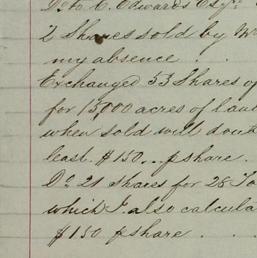 D. N. C. Edwards Esqr.
2 Shares sold by Mr
my absence . .
Exchanged 53 Shares of
for 15,000 acres of land
when sold will doub
least. $150 .. p share.
Do 21 shares for 28 To
which I also calcula
$150 p share . . .